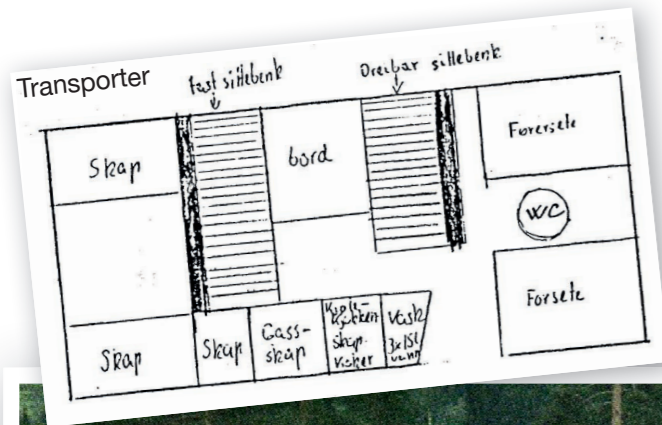 Transporter
fast sittebenk
Dreibar sittebenk
Skap
bord
Førersete
WC
Forsete
Skap
Skap
Gass-
skap
skap
Vask
3x15l
vann